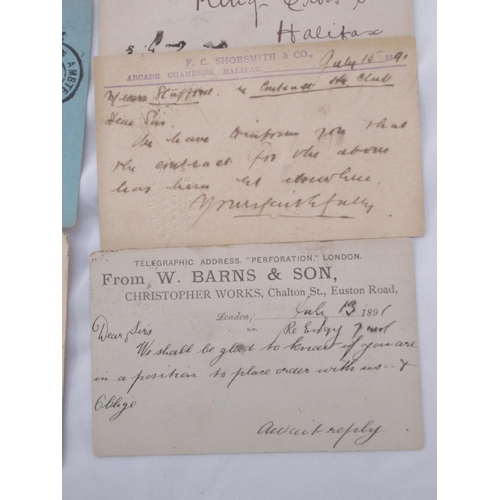 King Cross
Halifax
AMSTE
F. C. SHOESMITH & CO.,
ARCADE CHAMBERS, HALIFAX,
July 15 1891
Stafford re Contract the Club
Dear Sirs.
We have inform you that
the contract for the above
has been let elsewhere.
Yours faithfully
TELEGRAPHIC ADDRESS, "PERFORATION," LONDON.
From W. BARNS & SON,
CHRISTOPHER WORKS, Chalton St., Euston Road,
London, July 13 1891
Dear Sirs Re
We shall be glad to know if you are
in a position to place order with us &
Oblige
Await reply